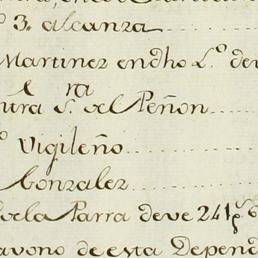 º 3. alcanza
Martinez en dho L.º deve
ura S.ʳᵃ del Peñon
º Vigileño
Gonzalez
de la Parra deve 241 p.ˢ 6
avono de esta Depend